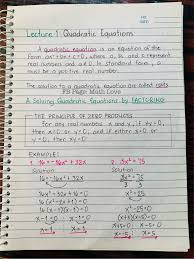 Lecture 1 Quadratic Equations
A quadratic equation is an equation of the
form ax²+bx+c=0, where a, b, and c represent
real numbers and a≠0. In standard form, a
must be a positive real number.
The solution to a quadratic equation are called roots
FB Page: Math Dive
A. Solving Quadratic Equations by FACTORING
THE PRINCIPLE OF ZERO PRODUCTS
For any real numbers x and y, if xy=0,
then x=0 or y=0, and if either x=0 or
y=0, then xy=0.
EXAMPLE:
1. 16=-16x²+32x
2. 3x²=75
Solution
Solution
16=-16x²+32x
3x²=75
16x²-32x+16=0
3x²-75=0
x²-2x+1=0
x²-25=0
x-1=0
x-1=0
x=1
x=1